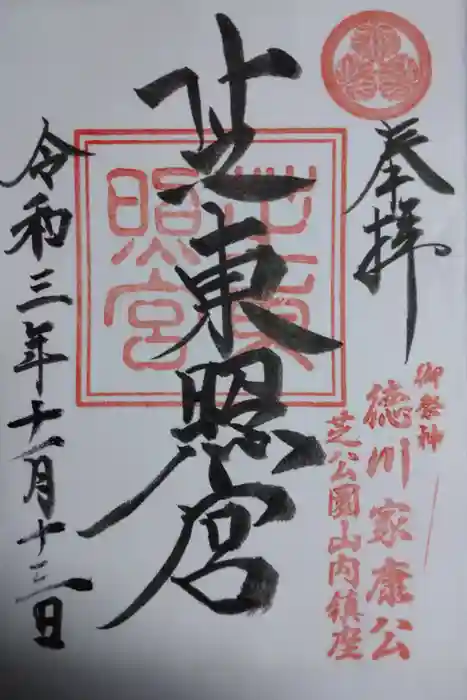 奉拝
御祭神
徳川家康公
芝公園山内鎮座
芝東照宮
芝東照宮
令和三年十一月十三日